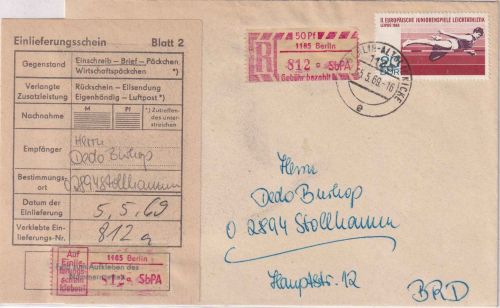 Einlieferungsschein Blatt 2
Gegenstand
Einschreib – Brief – Päckchen
Wirtschaftspäckchen *)
Verlangte Zusatzleistung
Rückschein – Eilsendung
Eigenhändig – Luftpost *)
Nachnahme
M
Pf
*) Zutreffendes unterstreichen
Empfänger
Herrn
Dedo Burhop
Bestimmungsort
02894 Stollhamm
Datum der Einlieferung
5.5.69
Verklebte Einlieferungs-Nr.
812 a
Auf Einlieferungsschein kleben!
1185 Berlin
812 a SbPA
50 Pf
1185 Berlin
R
812 a SbPA
Gebühr bezahlt
II. EUROPÄISCHE JUNIORENSPIELE LEICHTATHLETIK
LEIPZIG 1968
DDR
69.-16
e
Herrn
Dedo Burhop
0 2894 Stollhamm
Hauptstr. 12
BRD